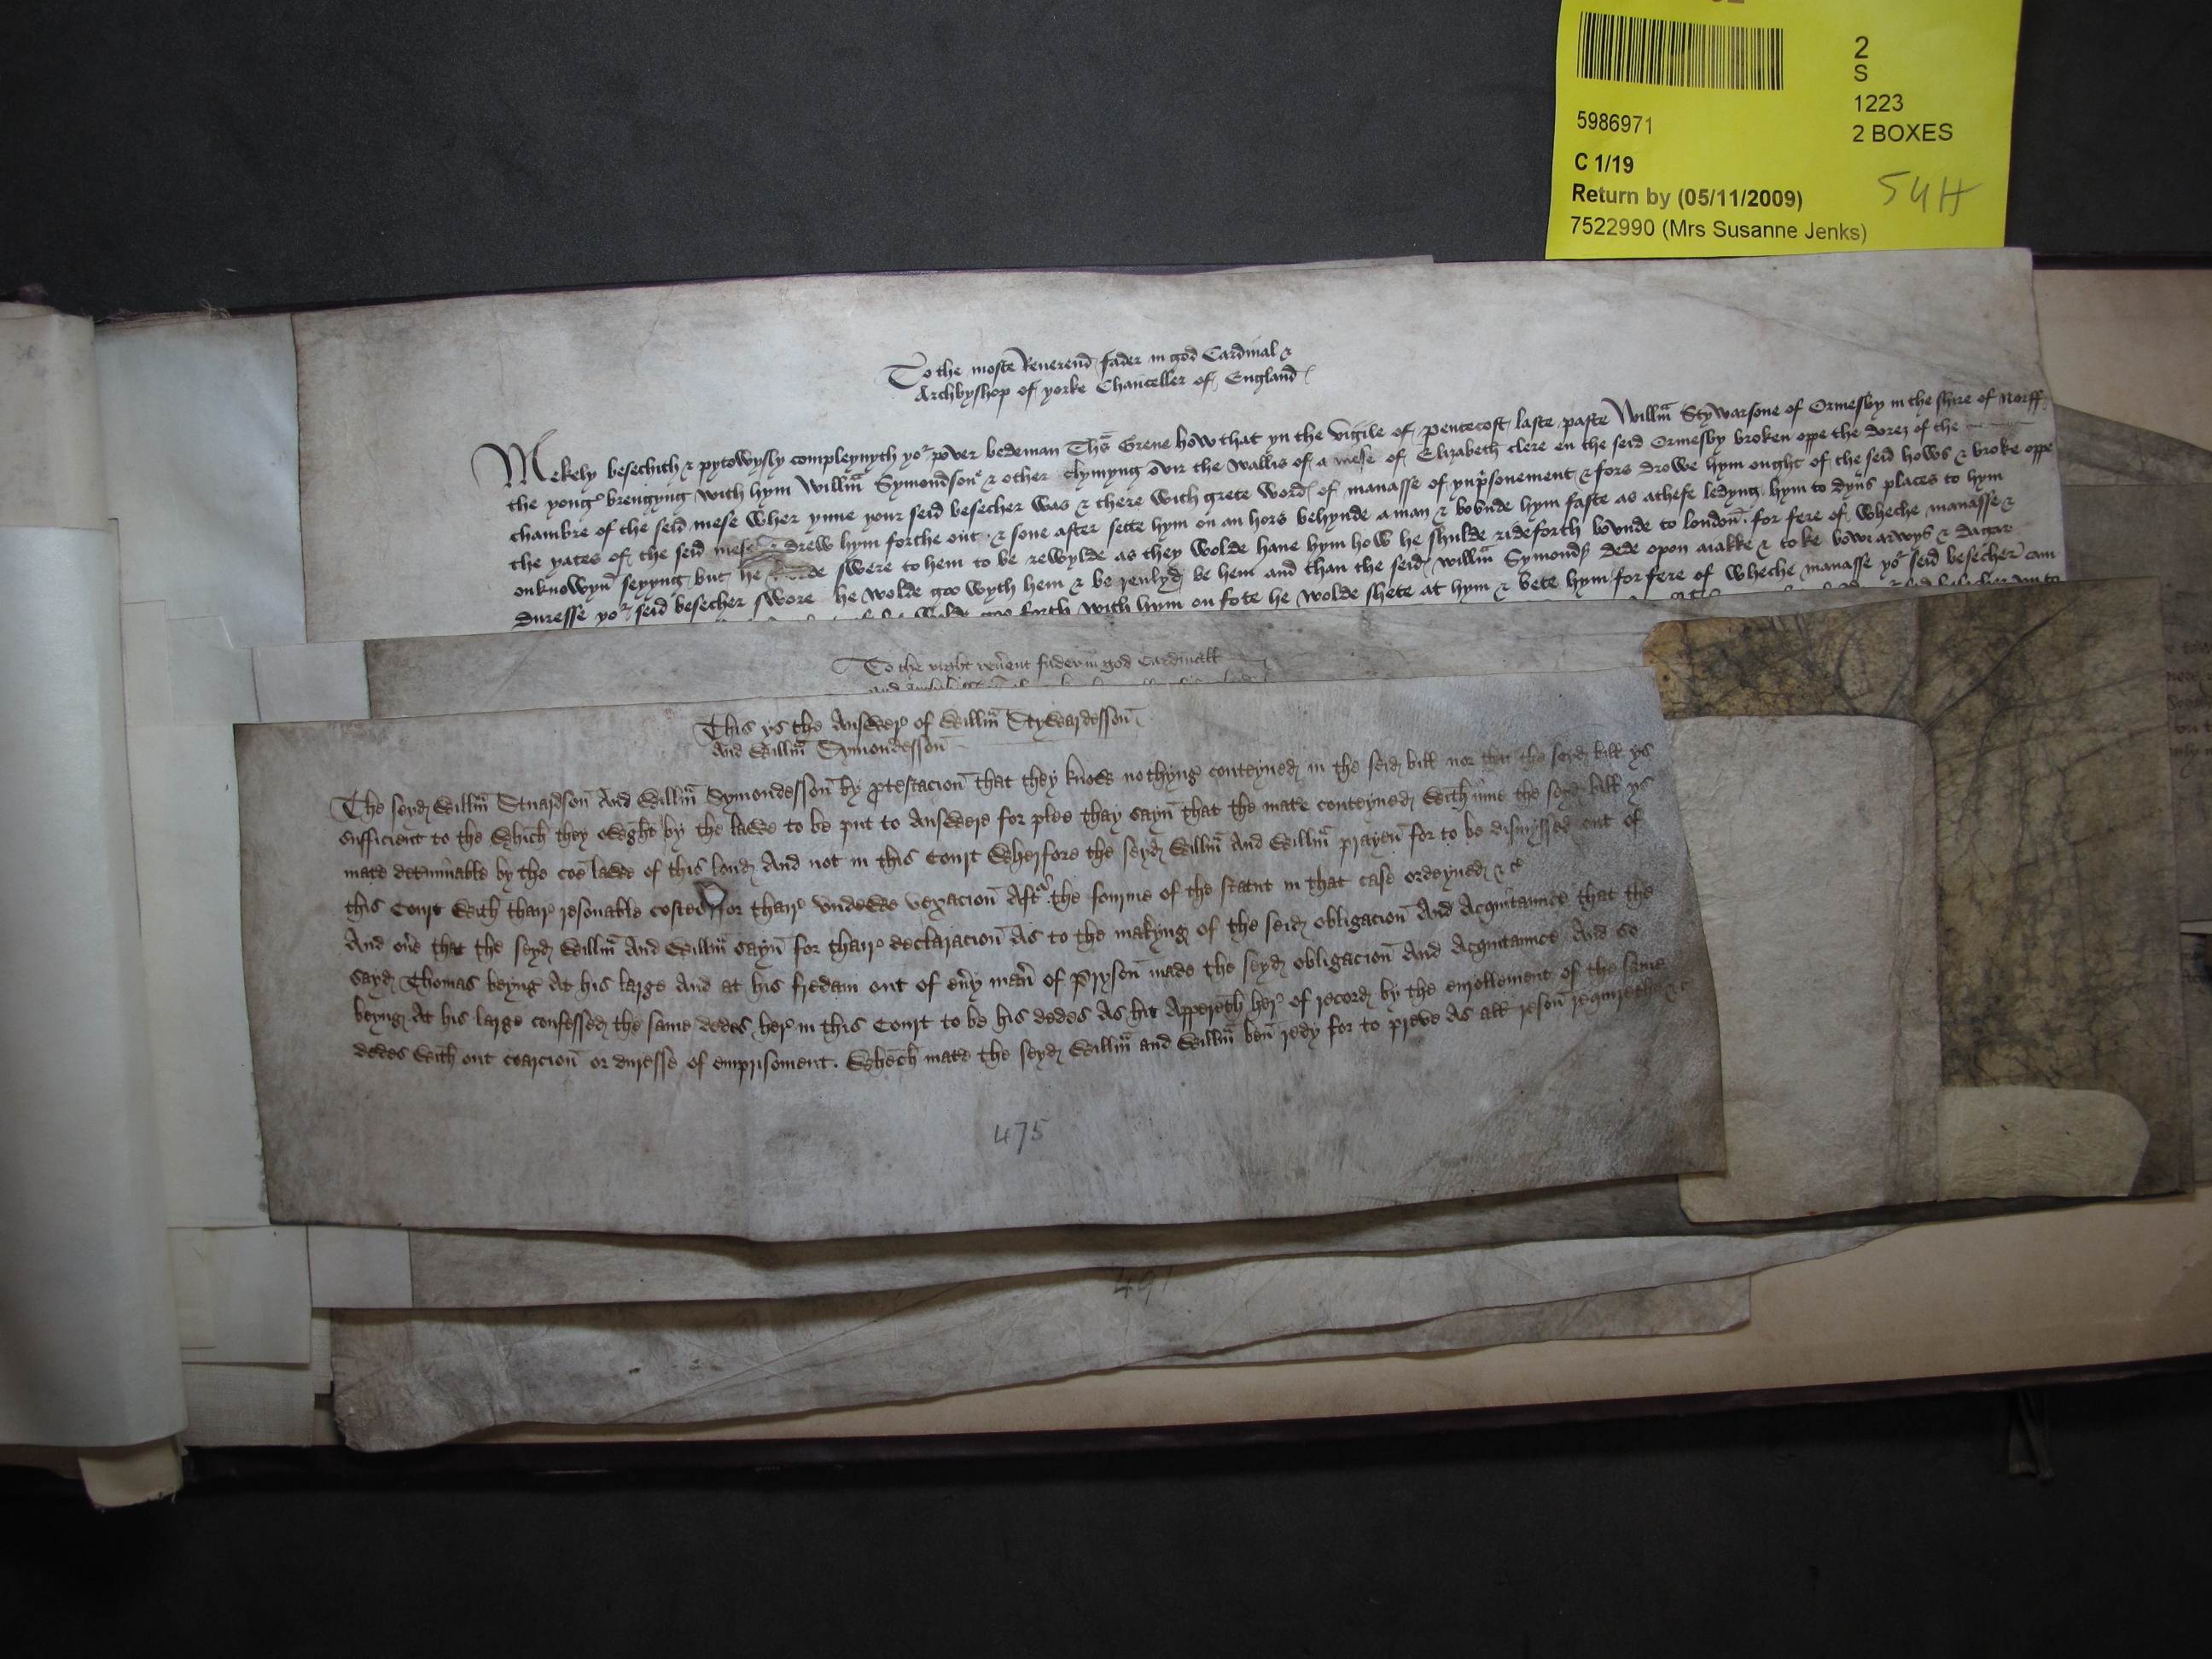 2
S
1223
5986971
2 BOXES
C 1/19
Return by (05/11/2009)
54H
7522990 (Mrs Susanne Jenks)
To the moste Reuerend fader in god Cardinal &
Archbyshop of yorke Chanceller of England
Mekely besechith & pytowysly compleynyth yor pover bedeman Thas Grene how that yn the vigile of pentecost laste paste Willm Stywarsone of Ormesby in the shire of Norff
the yonger brengyng with hym Willm Symondsone & other clymyng ovir the wallis of a mese of Elizabeth clere en the seid Ormesby broken oppe the dorez of the
chambre of the seid mese wher ynne your seid besecher was & there with grete word of manasse of ynprsonement & fors drowe hym ought of the seid hows & broke oppe
the yates of the seid mese & drew hym forthe out & sone after sette hym on an hors behynde a man & bounde hym faste as athefe ledyng hym to dyus places to hym
onknowyn seyyng but he swere to hem to be rewylde as they wolde haue hym how he shulde ride forth bounde to london for fere of wheche manasse &
duresse yor seid besecher swore he wolde goo wyth hem & be reulyd be hem and than the seid willm Symonds dede opon aiakke & toke bow arwys & dagar
wolde goo forth with hym on fote he wolde shete at hym & bete hym for fere of wheche manasse yor seid besecher cam
To the right reuent fader in god Cardinall
This ys the Answer of Willm Stywardesson
And Willm Symondesson
The seyd Willm Stuardson And Willm Symondesson by protestacion that they know nothyng conteyned in the seid bill nor that the seyd bill ys
sufficient to the which they owght by the lawe to be put to Answere for plee thay sayn that the mate conteyned with inne the seyd bill ys
mate determinable by the coe lawe of this lond And not in this Court Wherfore the seyd Willm And Willm prayen for to be dismyssed out of
this Court with thair resonable costes for thair vndewe vexacion Aftr the fourme of the statut in that case ordeyned &c
And ovre that the seyd Willm And Willm sayn for thair declaracion As to the makyng of the seid obligacion And Acquitaunce that the
sayd Thomas beyng At his large And at his fredam out of euy man of Pryson made the seyd obligacion And Acquitaunce And so
beyng At his large confessed the same dedes her in this Court to be his dedes As hit Appereth her of record by the enrollement of the same
dedes with out coarcion or duresse of emprisoment. Whech mate the seyd Willm and Willm ben redy for to preve As all reson requireth &c
475
491